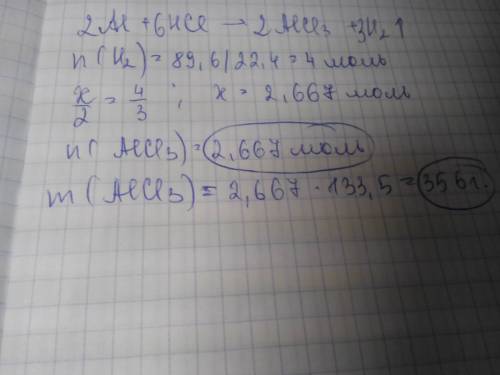 2Al + 6HCl → 2AlCl₃ + 3H₂↑
n(H₂) = 89,6/22,4 = 4 моль
x/2 = 4/3 ; x = 2,667 моль
n(AlCl₃) = 2,667 моль
m(AlCl₃) = 2,667 · 133,5 = 356г.